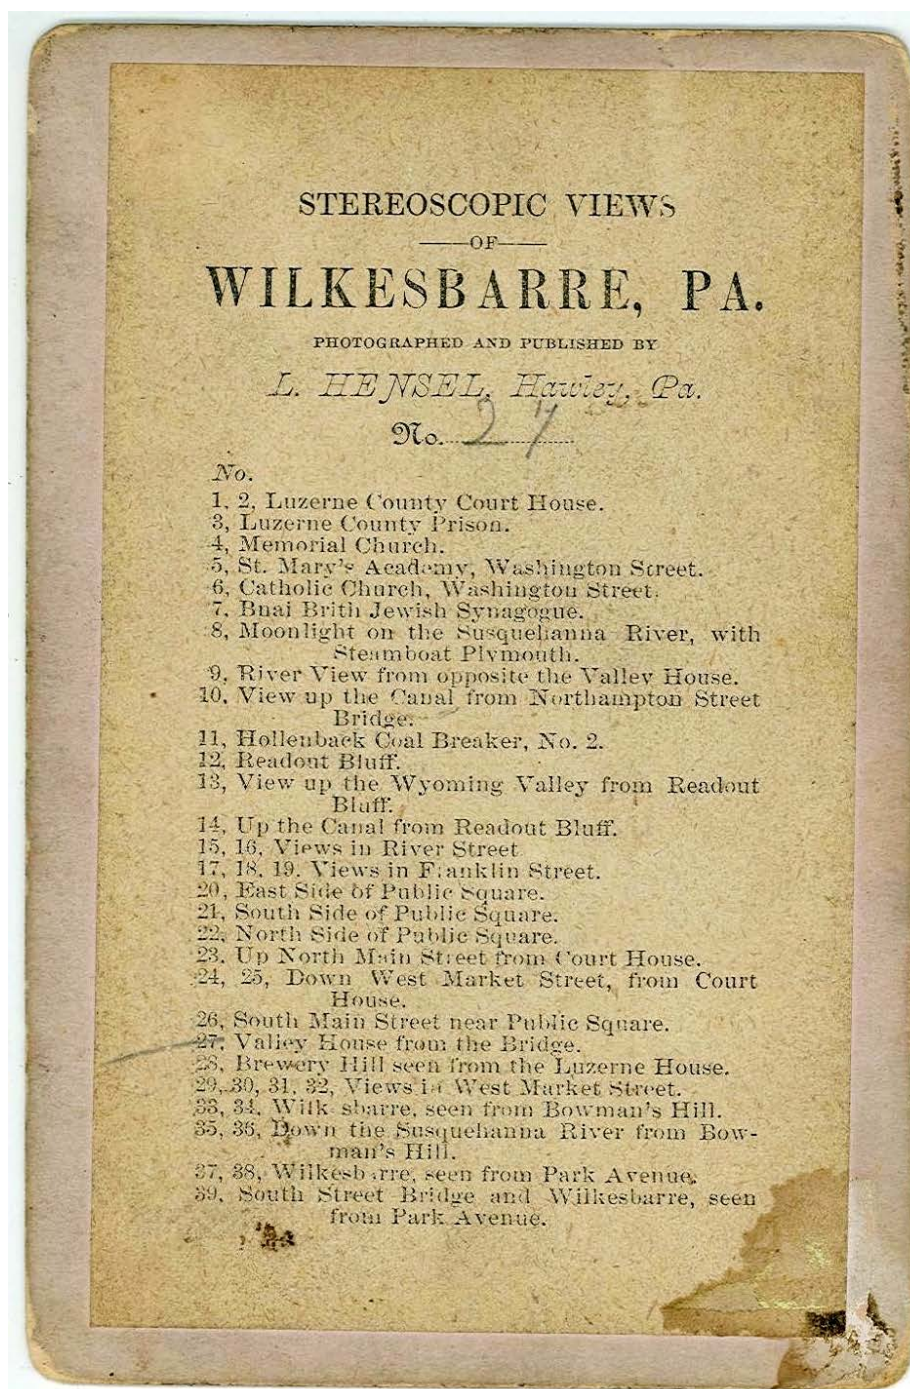 STEREOSCOPIC VIEWS
OF
WILKESBARRE, PA.
PHOTOGRAPHED AND PUBLISHED BY
L. HENSEL, Hawley, Pa.
No. 27
No.
1, 2, Luzerne County Court House.
3, Luzerne County Prison.
4, Memorial Church.
5, St. Mary's Academy, Washington Street.
6, Catholic Church, Washington Street.
7, Bnai Brith Jewish Synagogue.
8, Moonlight on the Susquehanna River, with
Steamboat Plymouth.
9, River View from opposite the Valley House.
10, View up the Canal from Northampton Street
Bridge.
11, Hollenback Coal Breaker, No. 2.
12, Readout Bluff.
13, View up the Wyoming Valley from Readout
Bluff.
14, Up the Canal from Readout Bluff.
15, 16, Views in River Street
17, 18, 19, Views in Franklin Street.
20, East Side of Public Square.
21, South Side of Public Square.
22, North Side of Public Square.
23, Up North Main Street from Court House.
24, 25, Down West Market Street, from Court
House.
26, South Main Street near Public Square.
27, Valley House from the Bridge.
28, Brewery Hill seen from the Luzerne House.
29, 30, 31, 32, Views in West Market Street.
33, 34, Wilkesbarre, seen from Bowman's Hill.
35, 36, Down the Susquehanna River from Bow-
man's Hill.
37, 38, Wilkesbarre, seen from Park Avenue.
39, South Street Bridge and Wilkesbarre, seen
from Park Avenue.